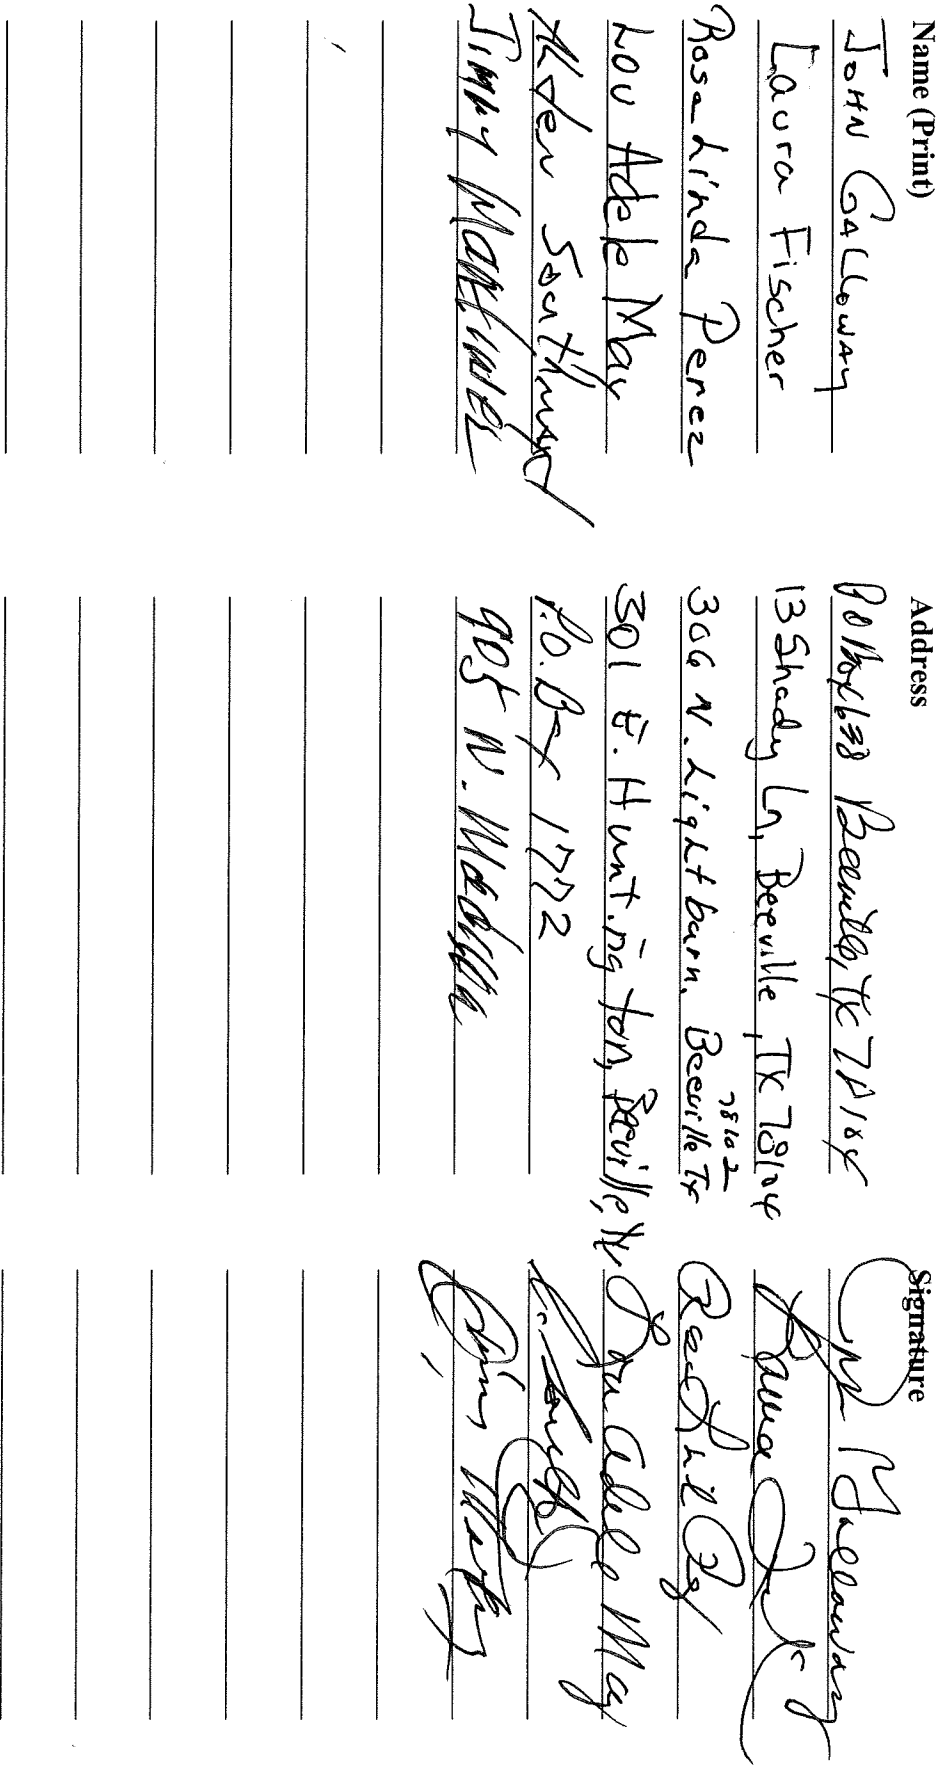 Name (Print) Address Signature
JOHN GALLOWAY PO Box 638 Beeville, TX 78104 John Galloway
Laura Fischer 13 Shady Ln, Beeville, TX 78104 Laura
Rosa Linda Perez 306 N. Lightburn. Beeville Tx 78102
Lou Adele May 301 E. Huntington, Beeville, Tx Lou Adele May
Alden Southmayd P.O. Box 1772
Jimmy MARTINEZ 905 N. Madison